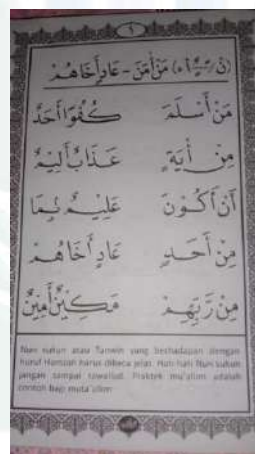 ١
مَنْ أَمَنَ - عَادٍ أَخَاهُمْ
مَنْ أَسْلَمَ كُفُوًا أَحَدٌ
مِنْ أٰيَةٍ عَذَابٌ أَلِيْمٌ
أَنْ أَكُوْنَ عَلِيْمٌ
مِنْ أَحَدٍ عَادٍ أَخَاهُمْ
مِنْ رَبِّهِمْ مَكِيْنٌ أَمِيْنٌ
Nun sukun atau Tanwin yang berhadapan dengan
huruf Hamzah harus dibaca jelas. Hati-hati Nun sukun
jangan sampai tawallud. Praktek mu'alim adalah
contoh bagi muta'alim